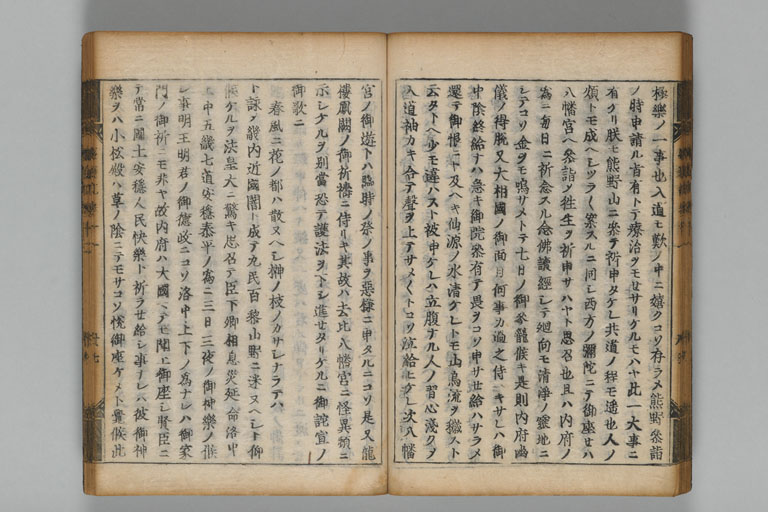 極樂ノ一事也入道モ歎ノ中ニ嬉クコソ存ラメ熊野參詣
ノ時申請ル旨有トテ療治ヲモセサリケルモハヤ此一大事ニ
有ケリ朕モ熊野山ニ參テ祈申タケレ共道ノ程モ遙也人ノ
煩トモ成ヘシツラ〱案スルニ同シ西方ノ彌陀ニテ御座セハ
八幡宮ヘ參詣〆徃生ヲ祈申サハヤト思召也且ハ内府ノ
為ニ毎日ニ祈念スル念佛讀經シテ廻向モ清淨ノ靈地ニ
シテコソ金ヲモ鳴サメトテ七日ノ御參籠候キ是則内府幽
儀ノ得脱又大相國ノ御面目何事カ過之侍ヘキサレハ御
中陰終給ナハ急キ御院參有テ畏ヲコソ申サセ給ハサラメ
還テ御恨ニ不及ヘキ仙源ノ水清ケレトモ山烏流ヲ穢スト
云タトヘ少モ違ハスト被申ケレハ立腹ナル人ノ習心淺クヲ
入道袖カキ合テ聲ヲ上テサメ〱トコソ泣給ヒケレ次八幡
宮ノ御遊トハ臨時ノ祭ノ事ヲ惡樣ニ申タルニコソ是又龍
樓鳳闕ノ御祈禱ニ侍リキ其故ハ去比八幡宮ニ怪異頻ニ
示シケルヲ別當恐テ護法ヲ下シ進セタリケルニ御詑宣ノ
御歌ニ
春風ニ花ノ都ハ散ヌヘシ榊ノ枝ノカサシナラテハ
ト詠〆畿内近國闇ト成テ九民百黎山野ニ迷ヌヘシト御
候ケルヲ法皇大ニ驚キ思召テ臣下卿相息災延命洛中
上中五畿七道安穩泰平ノ為ニ三日三夜ノ御神樂ノ候
シ事明王明君ノ御德政ニコソ洛中上下ノ為ナレハ御家
門ノ御祈ニモ非ヤ故内府ハ大國ヘテモ聞上御座シ賢臣ニ
テ常ニ國土安穩人民快樂ト祈ラセ給シ事ナレハ彼御神
樂ヲハ小松殿ハ草ノ陰ニテモサコソ悦御座ケメト覺候此